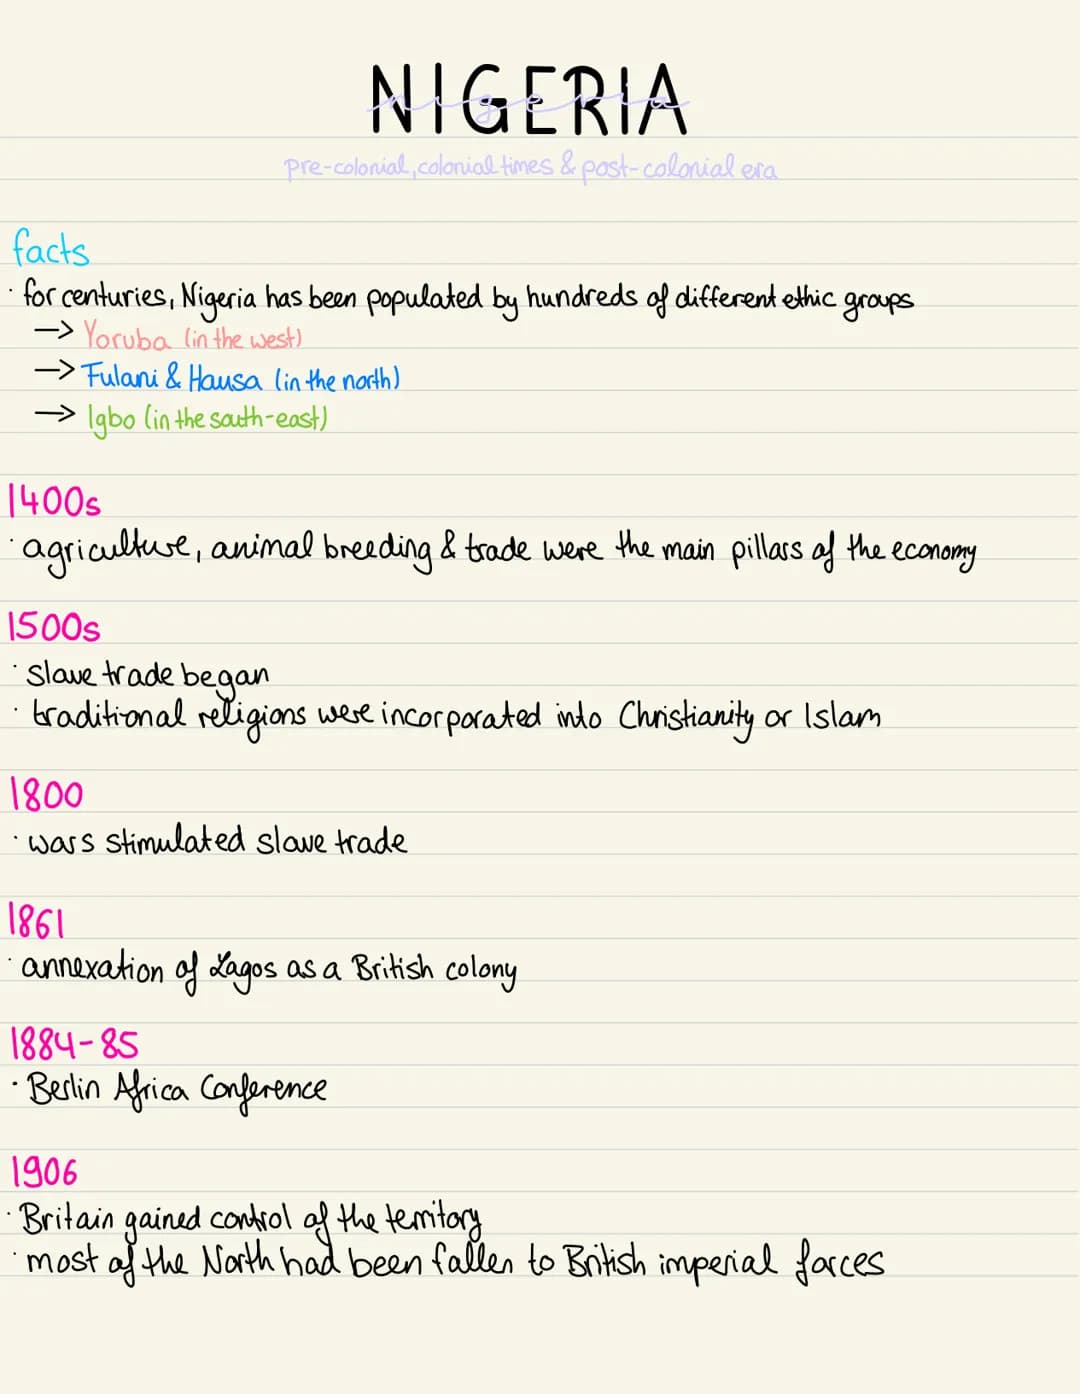 NIGERIA
nigeria
pre-colonial, colonial times & post-colonial era
facts
· for centuries, Nigeria has been populated by hundreds of different ethic groups
→ Yoruba (in the west)
→ Fulani & Hausa (in the north)
→ Igbo (in the south-east)
1400s
· agriculture, animal breeding & trade were the main pillars of the economy
1500s
· slave trade began
· traditional religions were incorporated into Christianity or Islam
1800
· wars stimulated slave trade
1861
· annexation of Lagos as a British colony
1884-85
· Berlin Africa Conference
1906
· Britain gained control of the territory
· most of the North had been fallen to British imperial forces